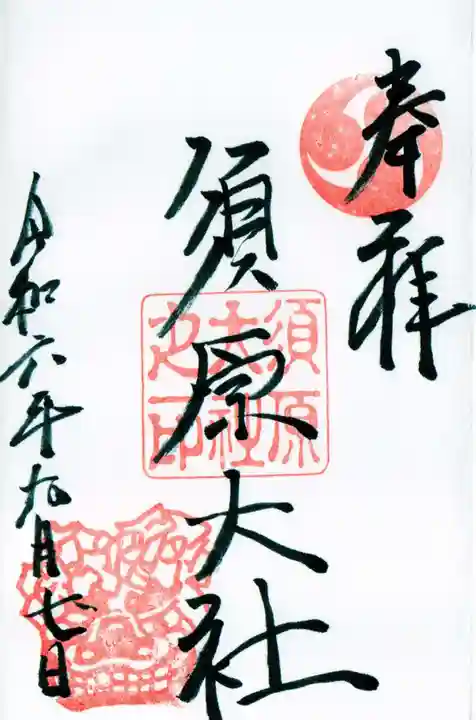 奉拝
須原大社
須原
大社
之印
令和六年九月七日